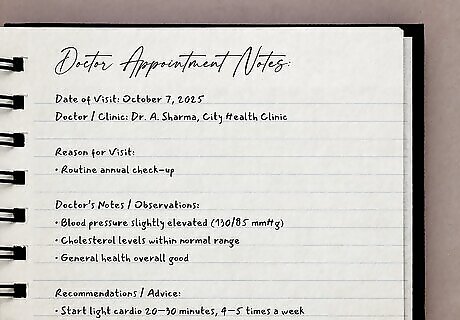 Doctor Appointment Notes:
Date of Visit: October 7, 2025
Doctor / Clinic: Dr. A. Sharma, City Health Clinic
Reason for Visit:
• Routine annual check-up
Doctor's Notes / Observations:
• Blood pressure slightly elevated (130/85 mmHg)
• Cholesterol levels within normal range
• General health overall good
Recommendations / Advice:
• Start light cardio 20–30 minutes, 4–5 times a week